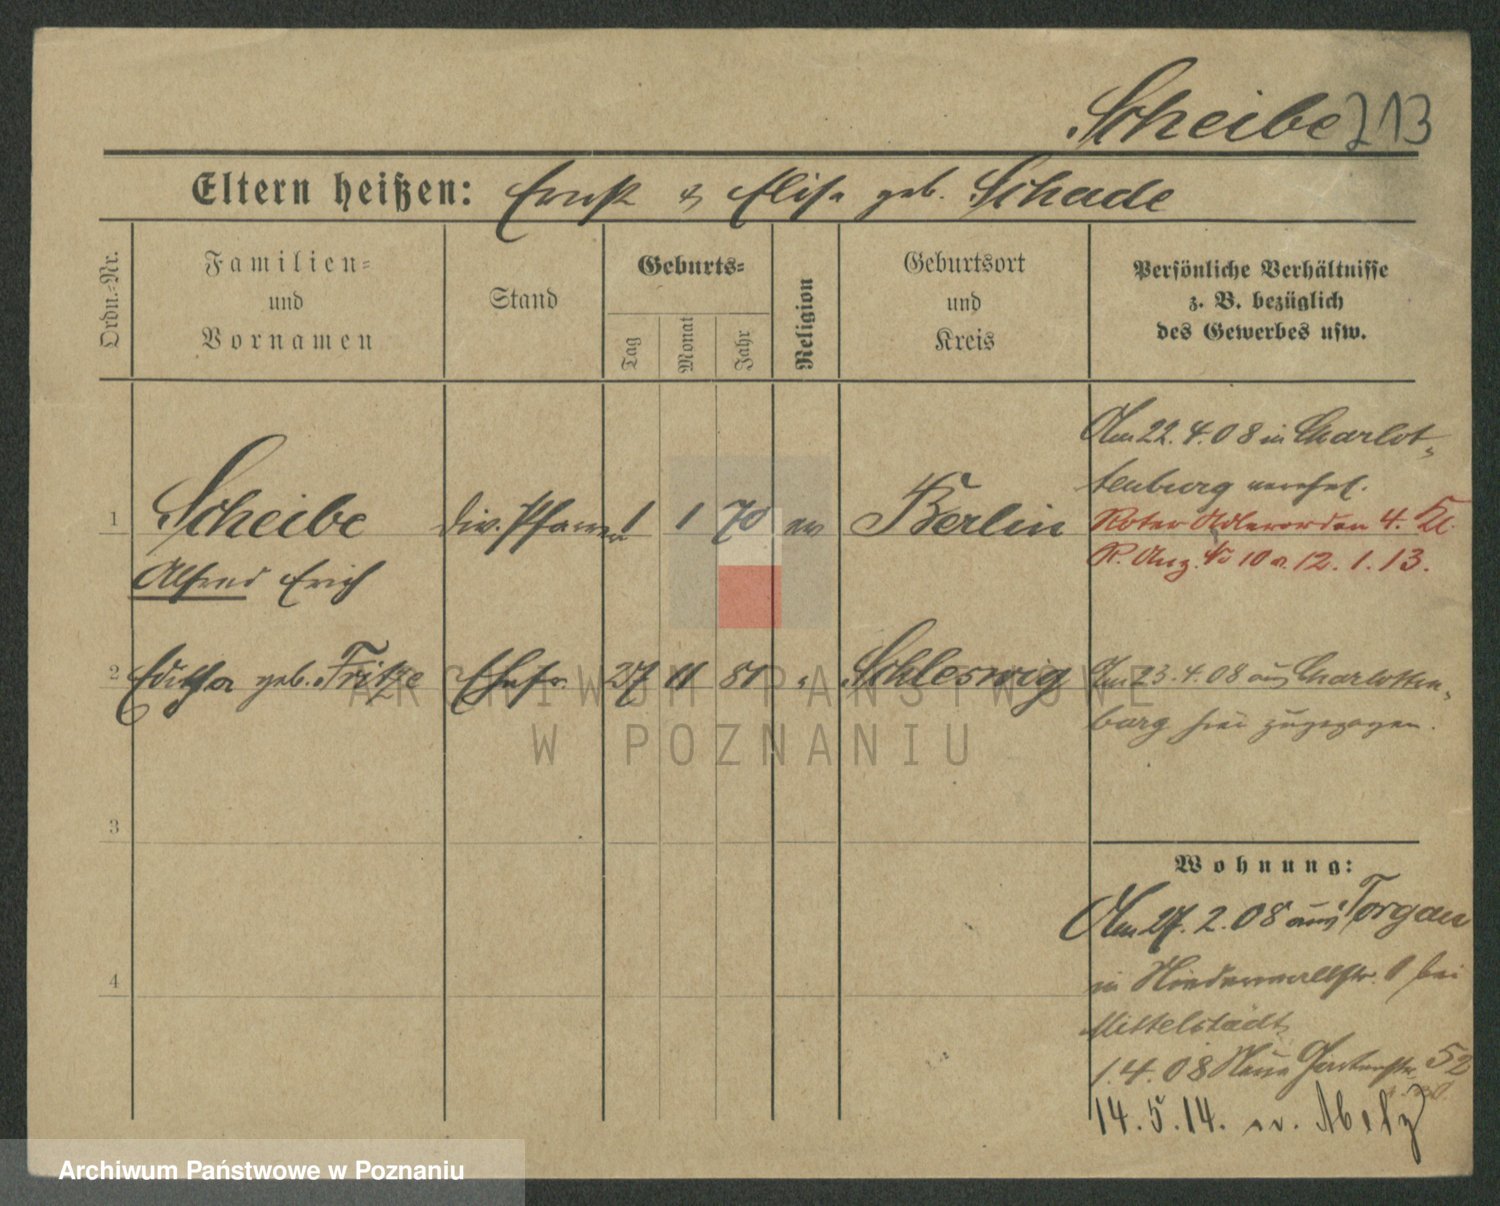 Scheibe 213
Eltern heißen: Ernst & Elise geb. Schade
Ordn.-Nr.
Familien-
und
Vornamen
Stand
Geburts-
Tag
Monat
Jahr
Religion
Geburtsort
und
Kreis
Persönliche Verhältnisse
z. B. bezüglich
des Gewerbes usw.
1 Scheibe Div. Pfarrer 1 1 70 ev Berlin
Alfred Erich
Am 22.4.08 in Charlot-
tenburg verehel.
Roter Adlerorden 4. Kl.
R. Anz. No 10 v. 12.1.13.
2 Editha geb. Fritze Ehefr. 27 11 81 " Schleswig
Am 23.4.08 aus Charlotten-
burg hier zugezogen.
3
4
Wohnung:
Am 27.2.08 aus Torgau
in Niederwallstr. 1 bei
Mittelstädt
1.4.08 Neue Gartenstr. 52
14.5.14. n.
ARCHIWUM PAŃSTWOWE
W POZNANIU
Archiwum Państwowe w Poznaniu